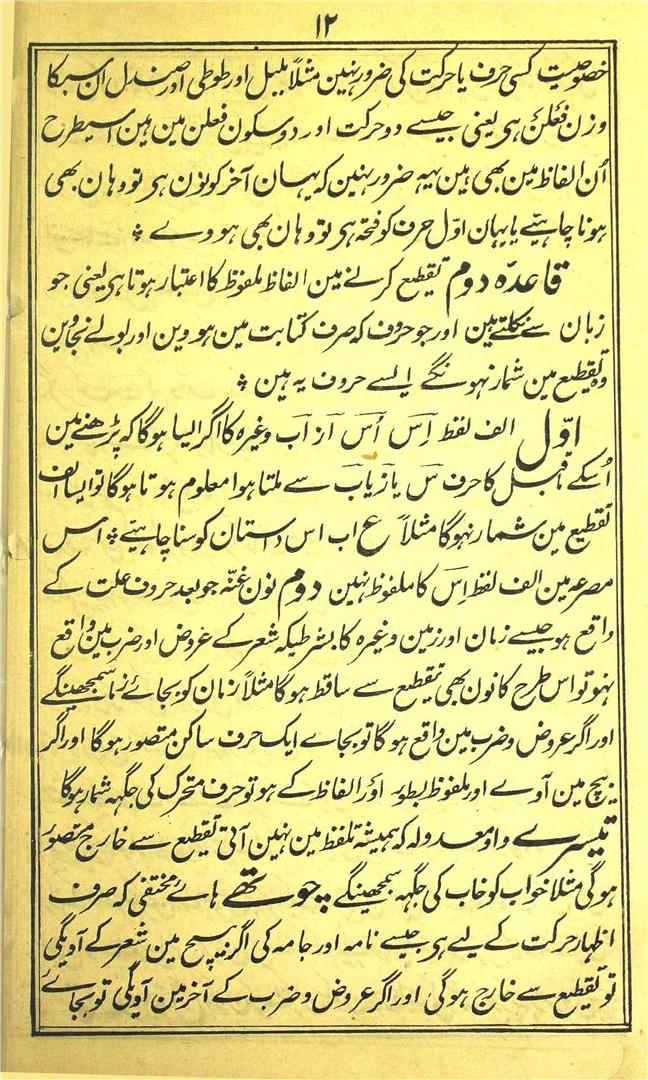 ۱۲
خصوصیت کسی حرف یا حرکت کی ضرور نہین مثلاً بلبل اور طوطی اور صندل ان سبکا
وزن فعلن ہی یعنی جیسے دو حرکت اور دو سکون فعلن مین ہین اسیطرح
اُن الفاظ مین بھی ہین یہہ ضرور نہین کہ یہان آخر کو نون ہی تو وہان بھی
ہونا چاہیئے یا یہان اوّل حرف کو فتحہ ہی تو وہان بھی ہووے ؞
قاعدہ دوم تقطیع کرنے مین الفاظ ملفوظ کا اعتبار ہوتا ہی یعنی جو
زبان سے نکلتے ہین اور جو حروف کہ صرف کتابت مین ہووین اور بولے نجاوین
وہ تقطیع مین شمار نہونگے ایسے حروف یہ ہین ؞
اوّل الف لفظ اِس اُس از اب وغیرہ کا اگر ایسا ہوگا کہ پڑھنے مین
اُسکے قبل کا حرف س یا ز یا ب سے ملتا ہوا معلوم ہوتا ہوگا تو ایسا الف
تقطیع مین شمار نہوگا مثلاً ع اب اس داستان کو سنا چاہیئے ؞ اس
مصرعہ مین الف لفظ اِس کا ملفوظ نہین دوم نون غنّہ جو بعد حروف علت کے
واقع ہو جیسے زمان اور زمین وغیرہ کا بشرطیکہ شعر کے عروض اور ضرب مین واقع
نہو تو اس طرح کا نون بھی تقطیع سے ساقط ہوگا مثلاً زمان کو بجائے زما سمجھینگے
اور اگر عروض و ضرب مین واقع ہوگا تو بجاے ایک حرف ساکن متصور ہوگا اور اگر
بیچ مین آوے اور ملفوظ بطور اور الفاظ کے ہو تو حرف متحرک کی جگہہ شمار ہوگا
تیسرے واو معدولہ کہ ہمیشہ تلفظ مین نہین آتی تقطیع سے خارج متصور
ہوگی مثلا خواب کو خاب کی جگہہ سمجھینگے ؞ چوتھے ہائے مختفی کہ صرف
اظہار حرکت کے لیے ہی جیسے نامہ اور جامہ کی اگر بیچ مین شعر کے آویگی
تو تقطیع سے خارج ہوگی اور اگر عروض و ضرب کے آخر مین آویگی تو بجائے